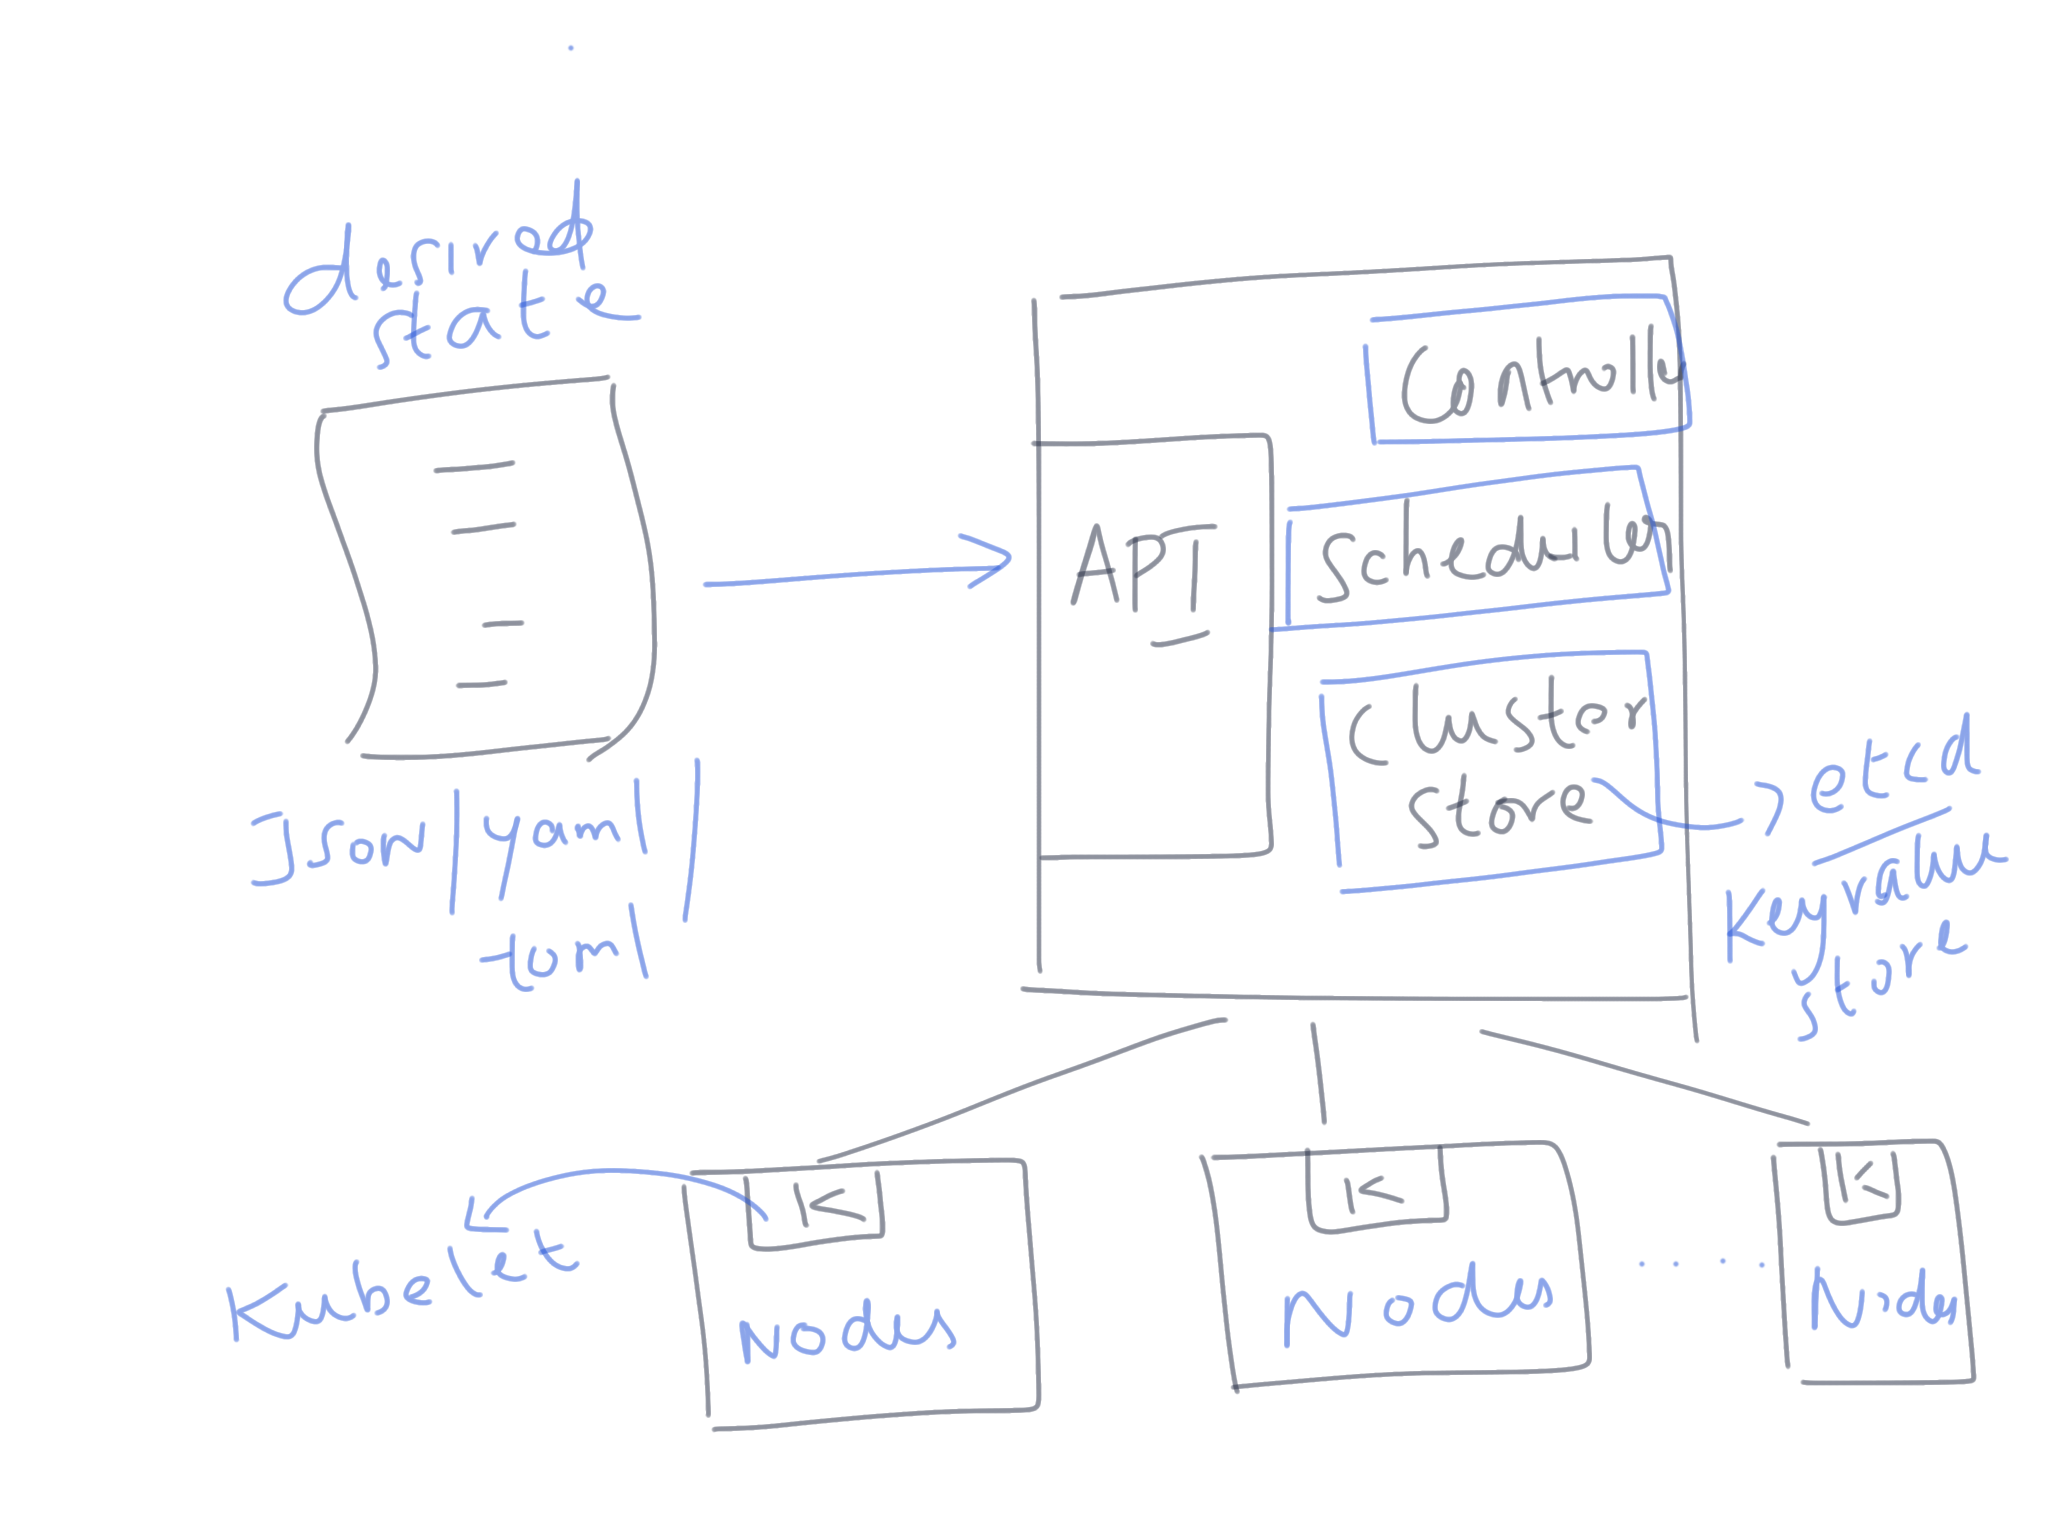 desired
state
Json/yaml/
toml
Controlle
API
Scheduler
Cluster
store
etcd
Keyvalue
store
Kubelet
K
Nodes
K
Nodes
. . . .
K
Nodes